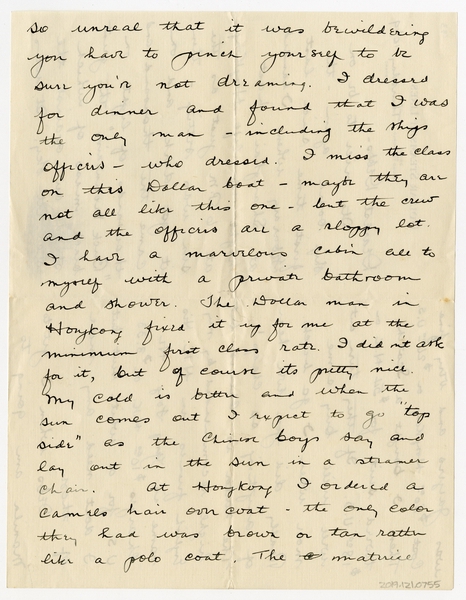 so unreal that it was bewildering
you have to pinch yourself to be
sure you're not dreaming. I dressed
for dinner and found that I was
the only man - including the ships
officers - who dressed. I miss the class
on this Dollar boat - maybe they are
not all like this one - but the crew
and the officers are a sloppy lot.
I have a marvelous cabin all to
myself with a private bathroom
and shower. The Dollar man in
Hongkong fixed it up for me at the
minimum first class rate. I didn't ask
for it, but of course its pretty nice.
My cold is better and when the
sun comes out I expect to go "top
side" as the Chinese boys say and
lay out in the sun in a steamer
chair. At Hongkong I ordered a
camels hair over coat - the only color
they had was brown or tan rather
like a polo coat. The c materiel
2019.12.0755